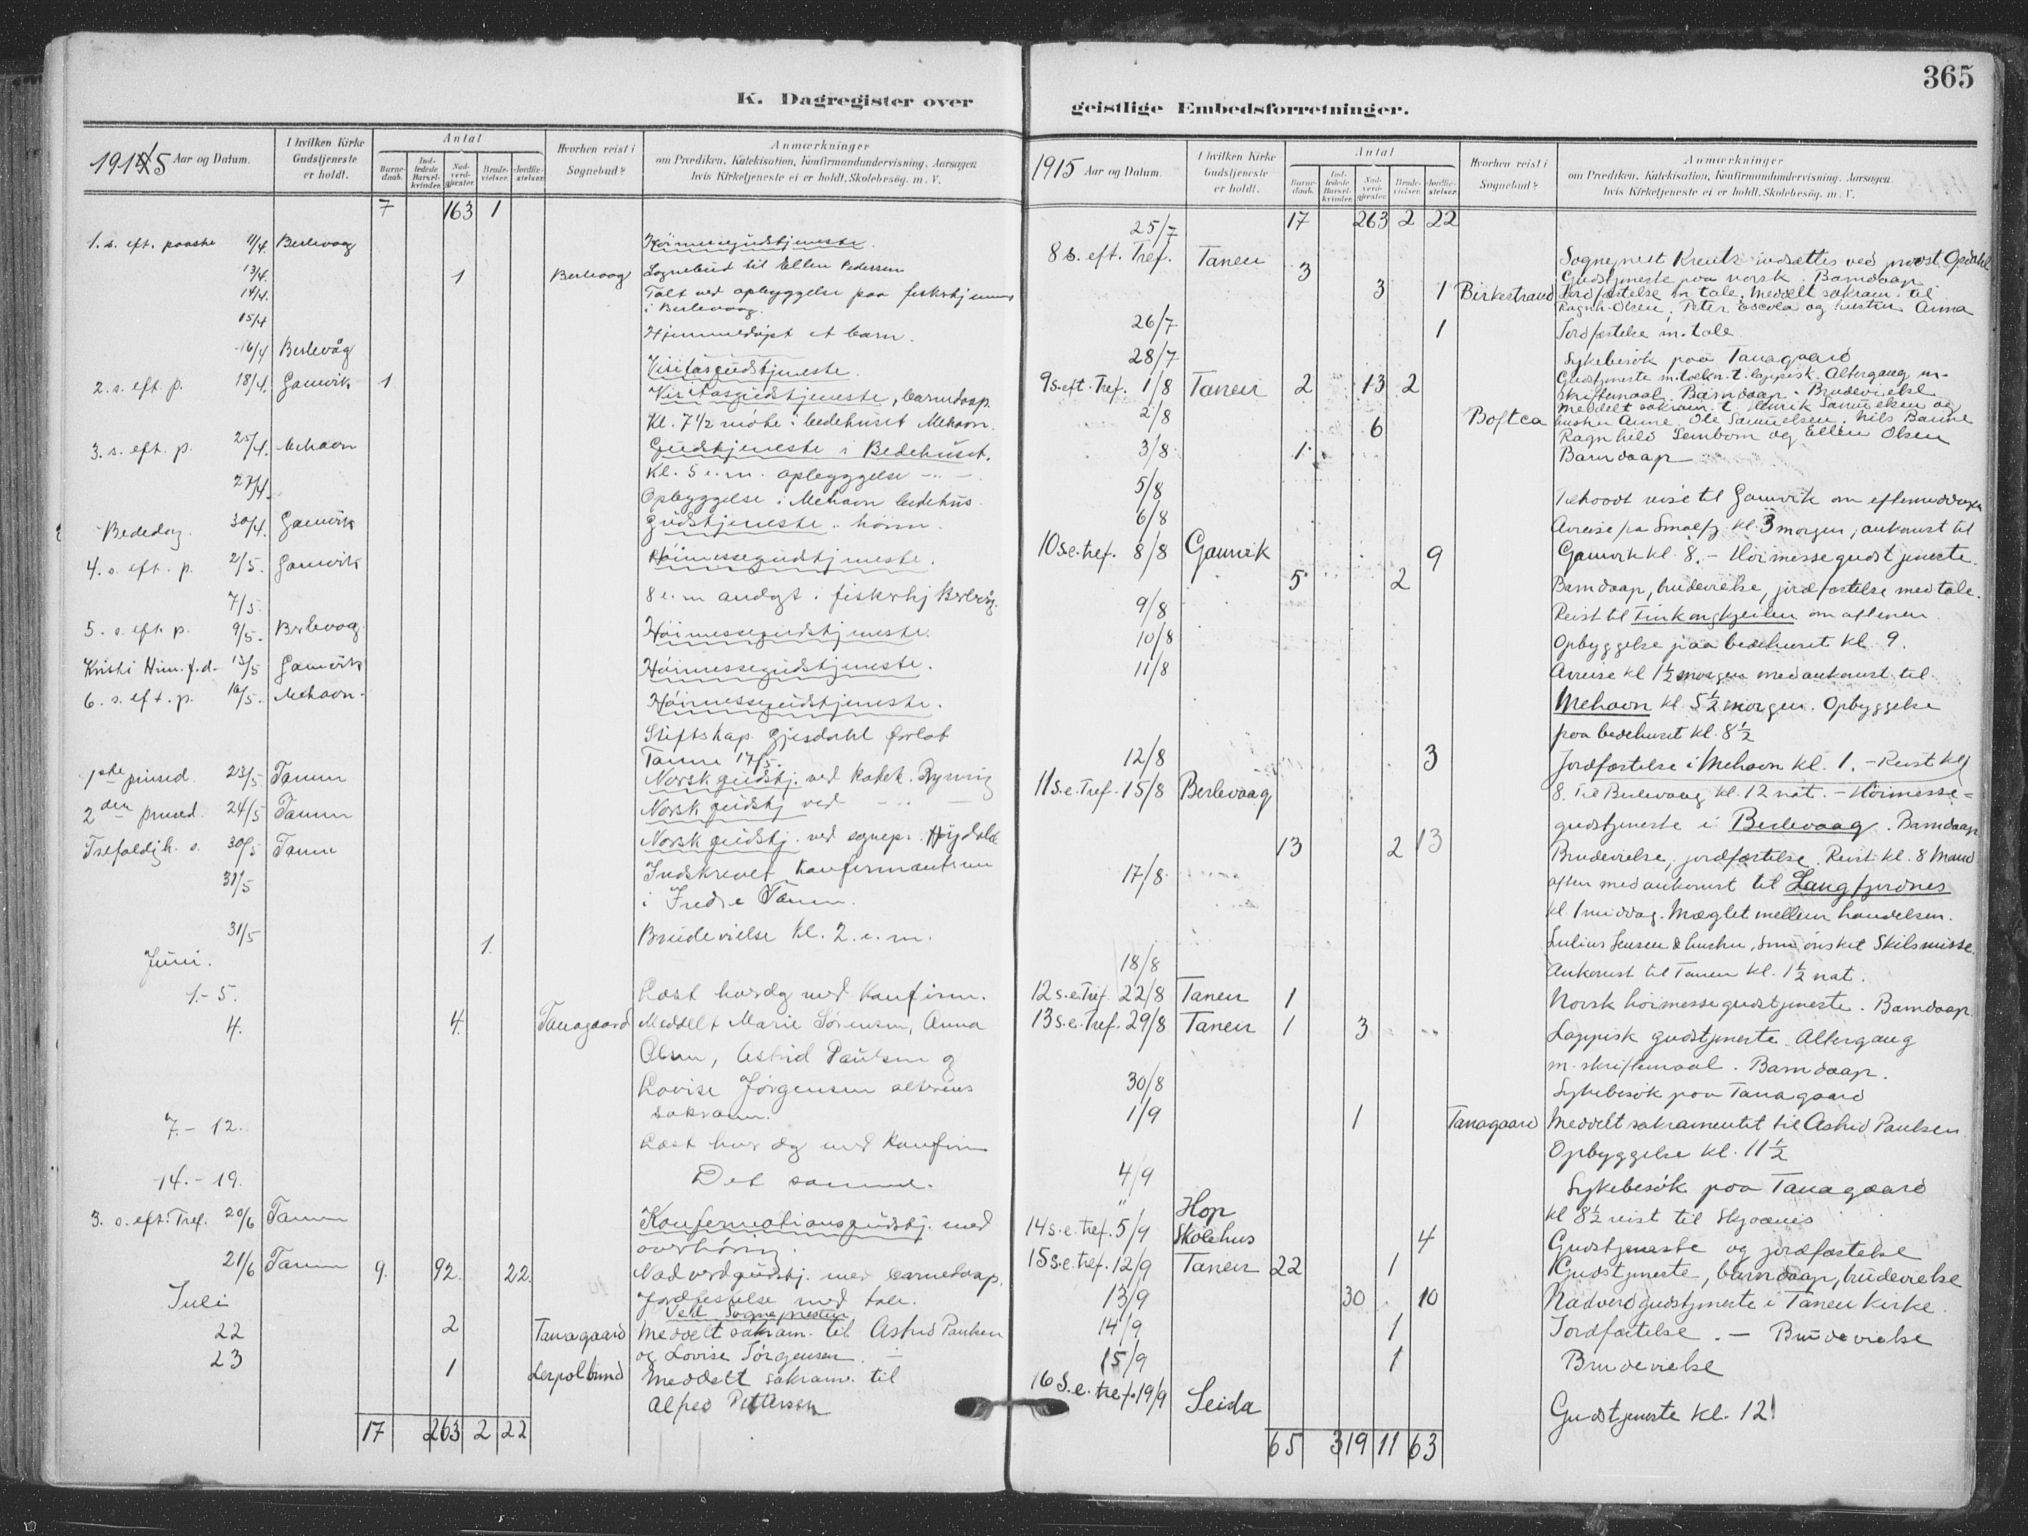 K. Dagregister over
1915 Aar og Datum.
I hvilken Kirke Gudstjeneste er holdt.
Antal
Barnedaab.
Indledede Barselkvinder.
Nadverdgjester.
Brudevielser.
Jordfæstelser.
Hvorhen reist i Sognebud?
Anmærkninger
om Prædiken, Katekisation, Konfirmandundervisning, Aarsagen
hvis Kirketjeneste ei er holdt, Skolebesøg. m. V.
7 163 1
1. s. eft. paaske 11/4. Berlevaag Höimessegudstjeneste.
13/4. 1 Berlevaag Sognebud til Ellen Pedersen
14/4. Talt ved opbyggelse paa fiskerhjemmet
i Berlevaag.
15/4 Hjemmedøpt et barn.
16/4 Berlevåg Visitasgudstjeneste.
2. s. eft. p. 18/4. Gamvik 1 Visitasgudstjeneste, barnedaap.
Kl. 7 1/2 møte i bedehuset Mehavn.
3. s. eft. p. 25/4. Mehavn Gudstjeneste i Bedehuset.
Kl. 5 e.m. opbyggelse - " -
27/4. Opbyggelse i Mehavn bedehus.
Bededag. 30/4. Gamvik gudstjeneste.
4. s. eft. p. 2/5. Gamvik Höimessegudstjeneste.
7/5. 8 e.m andagt i fiskerhj Berlevåg.
5. s. eft. p. 9/5. Berlevaag. Höimessegudstjeneste.
Kristi Him. f. d. 13/5 Gamvik Höimessegudstjeneste.
6. s. eft. p. 16/5. Mehavn. Höimessegudstjeneste.
Stiftskap. Gjesdahl forlot
Tanen 17/5.
1ste pinsed. 23/5. Tanen Norsk gudstj. ved Katek.
2den pinsed. 24/5 Tanen Norsk gudstj ved - " -
Trefoldigh. s. 30/5 Tanen Norsk gudstj. ved sognepr.
31/5 Indskrevet konfirmanterne
i Tanen.
31/5 1. Brudevielse kl. 2. e. m.
Juni.
1.-5. Læst hverdag med Konfirm.
4. 4. Tanagaard Meddelt Marie Sörensen, Anna
Olsen, Astrid Paulsen og
Lovise Jørgensen alterens
sakram.
7.-12. Læst hver dag med Konfirm
14.-19. Det samme.
3. s. eft. Tref. 20/6 Tanen Konfirmationsgudstj. med
overhøring.
21/6 Tanen 9. 92. 22. Nadverdgudstj. med barnedaap.
Jordfestelse med tale.
Juli
ved Sognepresten
22 2 Tanagaard Meddelt sakram. til Astrid Paulsen
og Lovise Jörgensen. -
23 1 Leirpolbund Meddelt sakram. til
Alfred Pettersen
17 263 2 22
365
geistlige Embedsforretninger.
1915 Aar og Datum.
I hvilken Kirke Gudstjeneste er holdt.
Antal
Barnedaab.
Indledede Barselkvinder.
Nadverdgjester.
Brudevielser.
Jordfæstelser.
Hvorhen reist i Sognebud?
Anmærkninger
om Prædiken, Katekisation, Konfirmandundervisning, Aarsagen
hvis Kirketjeneste ei er holdt, Skolebesøg. m. V.
17 263 2 22
25/7
8 s. eft. Tref. Tanen 3 Sogneprest Kreutz indsættes ved provst Opdahl
Gudstjeneste paa norsk. Barndaap
3 1 Birkestrand Jordfæstelse m tale. Meddelt sakram. til
Ragnh. Olsen, Peter Escola og hustru Anna
26/7 1 Jordfæstelse m. tale
28/7 Sykebesök paa Tanagaard
9 s. eft. Tref. 1/8 Tanen 2 13 2 Gudstjeneste m. tolkn. t. lappisk. Altergang m.
skriftemaal. Barndaap. Brudevielse
2/8 6 Boftca meddelt sakram. t. Henrik Samuelsen og
hustru Anne, Ole Samuelsen, Nils Banne
Ragnhild Sembom og Ellen Olsen
3/8 1 Barndaap
5/8 Tilkaldt reise til Gamvik om eftermiddagen
6/8 Avreise pa Smalfj. kl. 3 morgen, ankomst til
10 s.e. tref. 8/8 Gamvik 9 Gamvik kl. 8. - Höimessegudstjeneste.
5 2 Barndaap, brudevielse, jordfæstelse med tale.
9/8 Reist til Finkongkjeilen om aftenen
10/8 Opbyggelse paa bedehuset kl. 9.
11/8 Avreise kl 1 1/2 morgen med ankomst til
Mehavn kl. 5 1/2 morgen. Opbyggelse
paa bedehuset kl. 8 1/2
12/8 3 Jordfæstelse i Mehavn kl. 1. - Reist kl
11 s.e. Tref. 15/8 Berlevaag 8. til Berlevaag kl. 12 nat. - Höimesse=
gudstjeneste i Berlevaag. Barndaap
13 2 13 Brudevielse, jordfæstelse. Reist kl. 8 Mand
17/8. aften med ankomst til Langfjordnes
kl. 1 middag. Mæglet mellem handelsm.
Julius Jensen & hustru, som önsket Skilsmisse.
18/8 Ankomst til Tanen kl. 1 1/2 nat.
12 s.e. Tref. 22/8 Tanen 1 Norsk höimessegudstjeneste. Barndaap.
13 s.e. Tref. 29/8 Tanen 1 3 Lappisk gudstjeneste. Altergang
m. skriftemaal. Barndaap.
30/8 Sykebesök paa Tanagaard
1/9 1 Tanagaard Meddelt sakramentet til Astrid Paulsen
Opbyggelse kl. 11 1/2
4/9 Sykebesök paa Tanagaard
" kl 8 1/2 reist til
14 s.e. tref. 5/9 Hop Skolehus 4 Gudstjeneste og jordfæstelse
15 s.e. tref. 12/9 Tanen 22 1 Gudstjeneste, barndaap, brudevielse
13/9 30 10 Nadverdgudstjeneste i Tanen kirke.
14/9 1 Jordfæstelse. - Brudevielse
15/9 1 Brudevielse
16 s.e. tref. 19/9 Seida Gudstjeneste kl. 12!
65 319 11 63